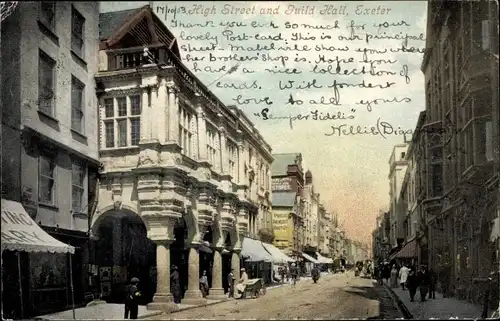 High Street and Guild Hall, Exeter
Thank you ever so much for your
lovely Post-card, This is our principal
street. Mabel will show you where
her brothers' shop is. Hope you
have a nice collection of
cards. With fondest
love to all yours
"Semper Fidelis"
Nellie